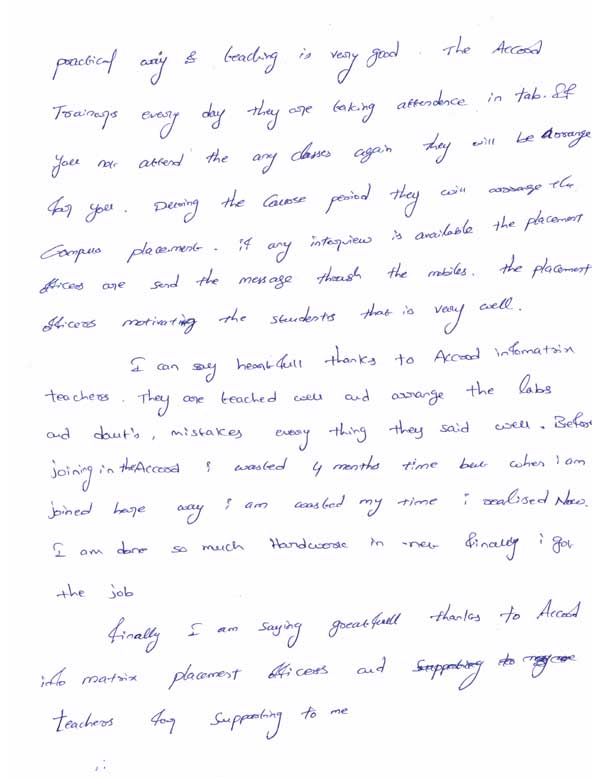 practical way & teaching is very good. The Accord
Trainers every day they are taking attendence in tab. If
you not attend the any classes again they will be Arrange
for you. During the Course period they will arrange the
Campus placement. if any interview is available the placement
officers are send the message through the mobiles. the placement
officers motivating the students that is very well.
I can say heartfull thanks to Accord infomatrix
teachers. They are teached well and arrange the labs
and daut's, mistakes every thing they said well. Before
joining in the Accord i wasted 4 months time but when i am
joined here way i am wasted my time i realised Now.
I am done so much Hardwork in finally i got
the job
finally I am saying greatfull thanks to Accord
info matrix placement officers and supporting to
teachers for supporting to me